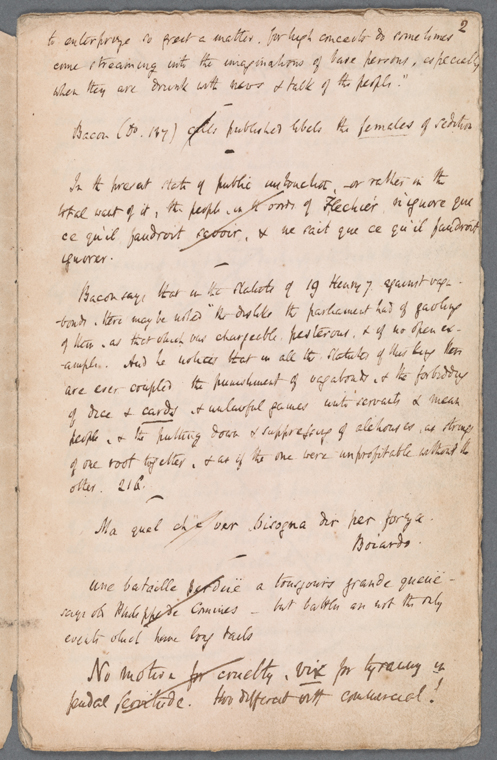 2
to enterprize so great a matter. for high conceits do sometimes
come streaming into the imaginations of base persons, especially
when they are drunk with news & talk of the people."
Bacon (Do. 187) calls published libels the females of sedition
In the present state of public instruction, or rather in the
total want of it, the people, in the words of Flechier, n'ignore que
ce qu'il faudroit sçavoir, & ne sait que ce qu'il faudroit
ignorer.
Bacon says that in the statute of 19 Henry 7. against vaga-
-bonds, there may be noted "the dislike the parliament had of gaoling
of them, as that which was chargeable, pesterous, & of no open ex-
-ample. And he notices that in all the statutes of this Kings there
are ever coupled the punishment of vagabonds, & the forbidding
of dice & cards, & unlawful games unto servants & mean
people, & the putting down & suppressing of alehouses, as strings
of one root together, & as if the one were unprofitable without the
other. 216.
Ma quel ch'è ver bisogna dir per forza.
Boiardo.
une bataille perduë a tousjours grande queuë -
says old Philippe de Comines - but battles are not the only
events which have long tails
No motive for cruelty, vix for tyranny in
feudal servitude. How different with commercial!